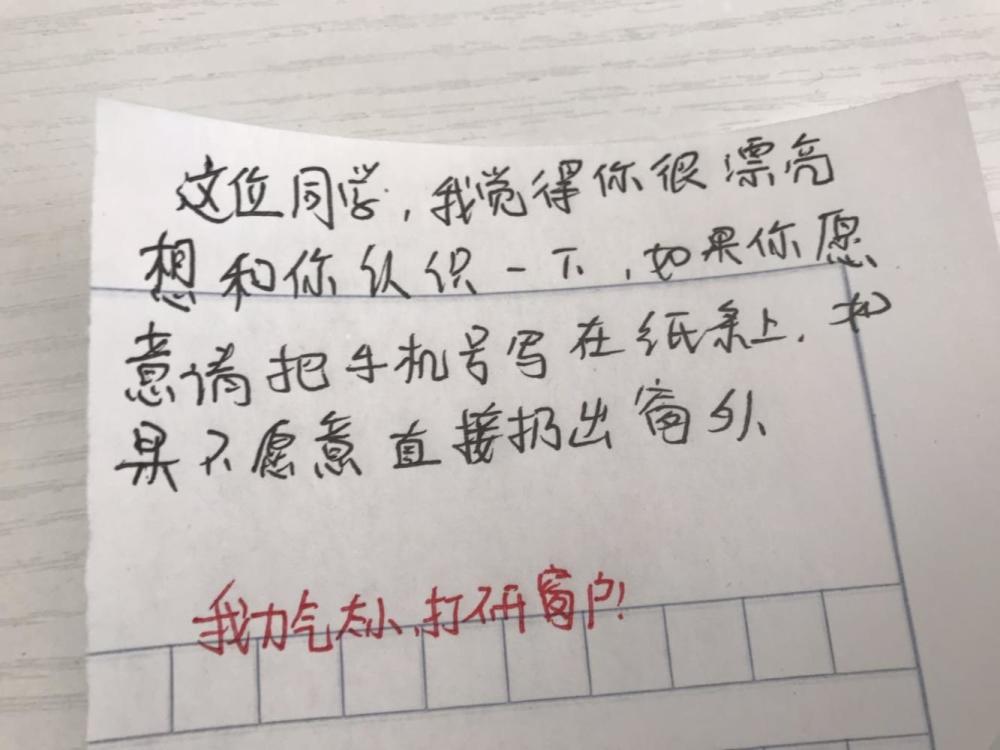 这位同学,我觉得你很漂亮
想和你认识一下,如果你愿
意请把手机号写在纸条上.如
果不愿意直接扔出窗外、
我力气太小,打不开窗户!